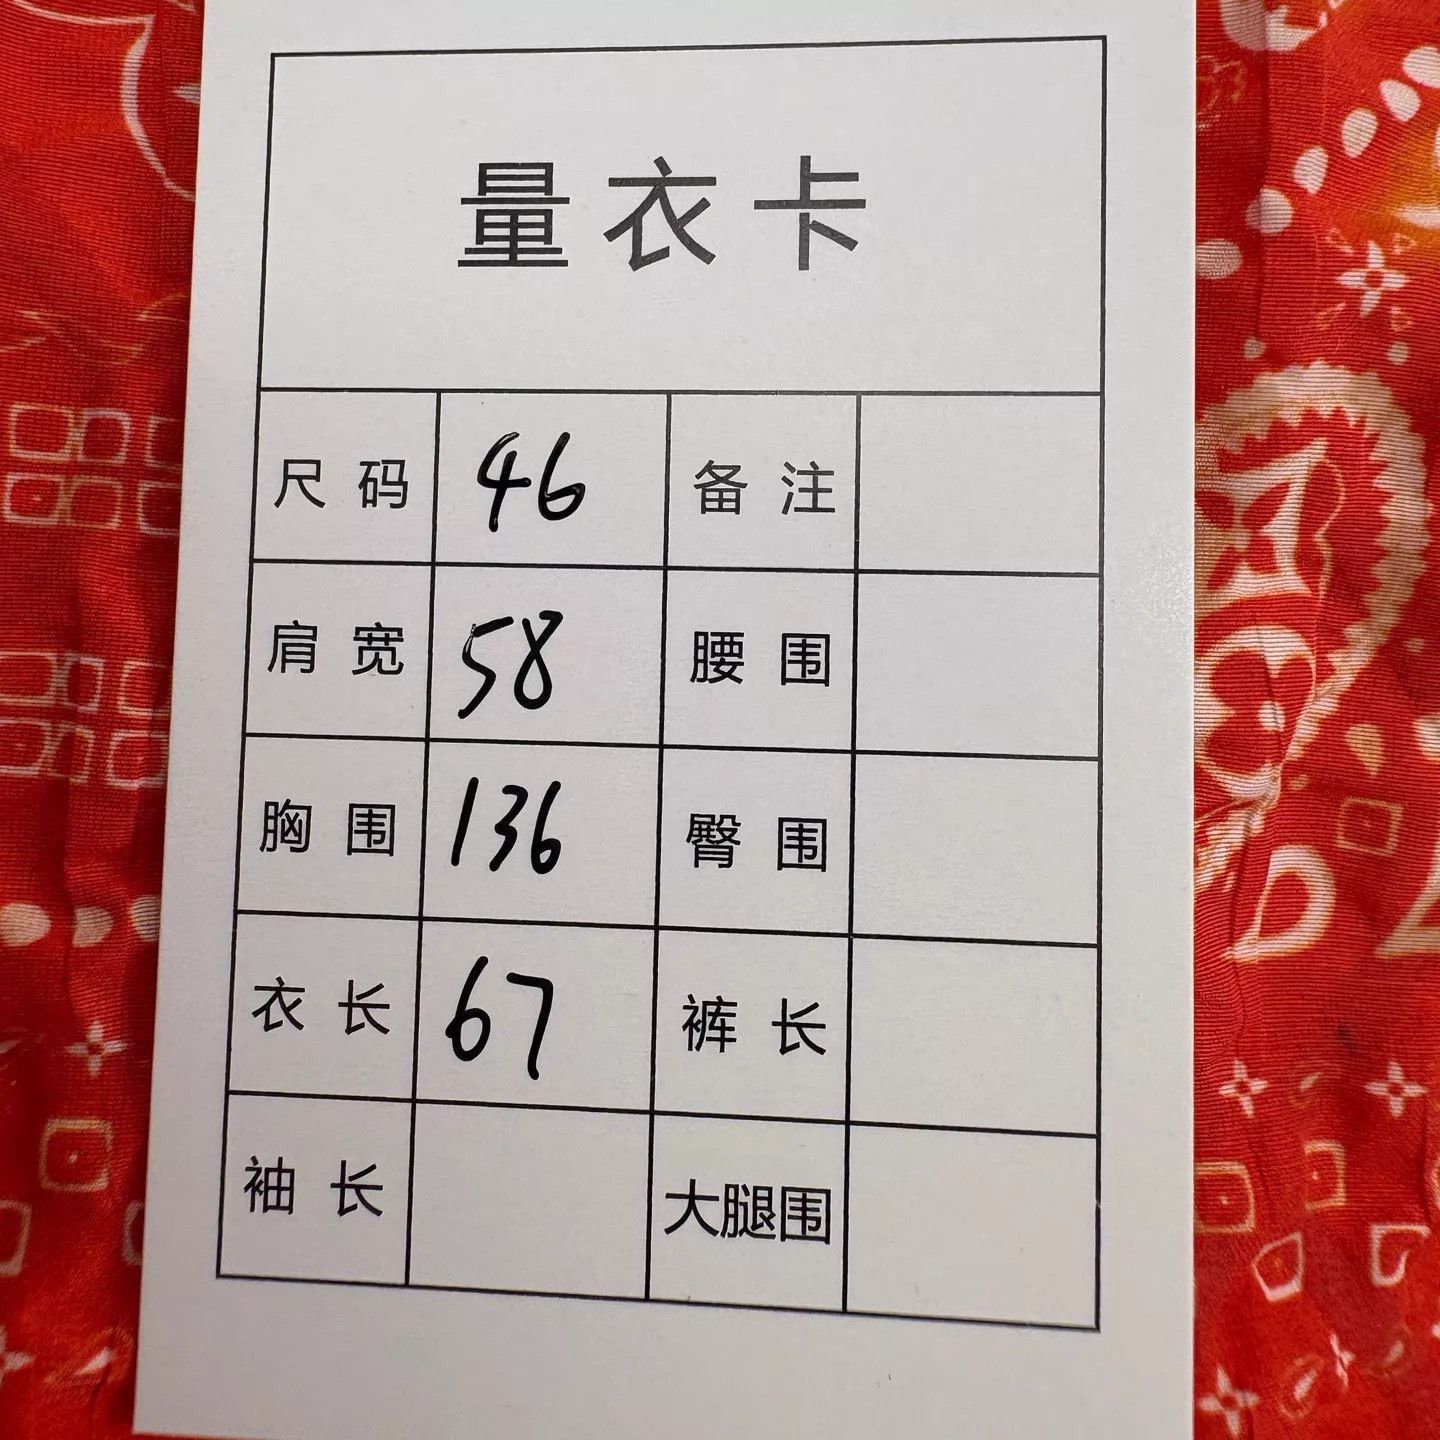 量衣卡
尺码 46 备注
肩宽 58 腰围
胸围 136 臀围
衣长 67 裤长
袖长 大腿围